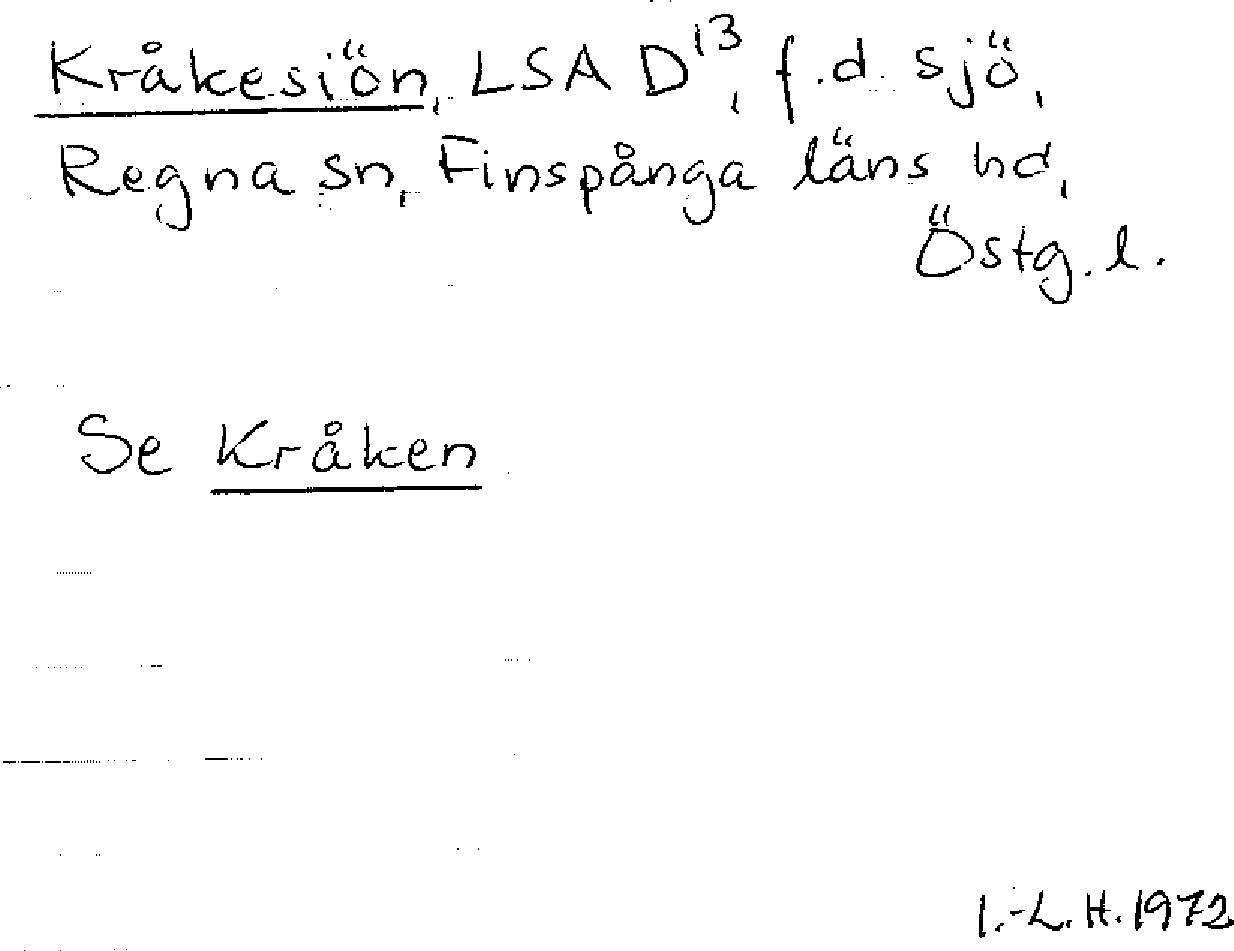 Kråkesiön, LSA D¹³, f.d. sjö,
Regna sn, Finspånga läns hd,
Östg. l.
Se Kråken
I.-L. H. 1972